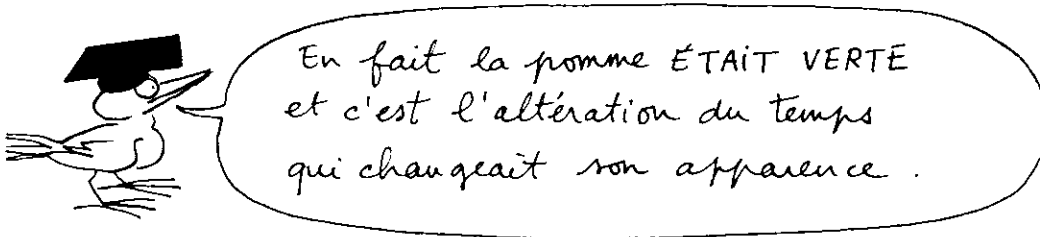 En fait la pomme ÉTAIT VERTE
et c'est l'altération du temps
qui changeait son apparence.